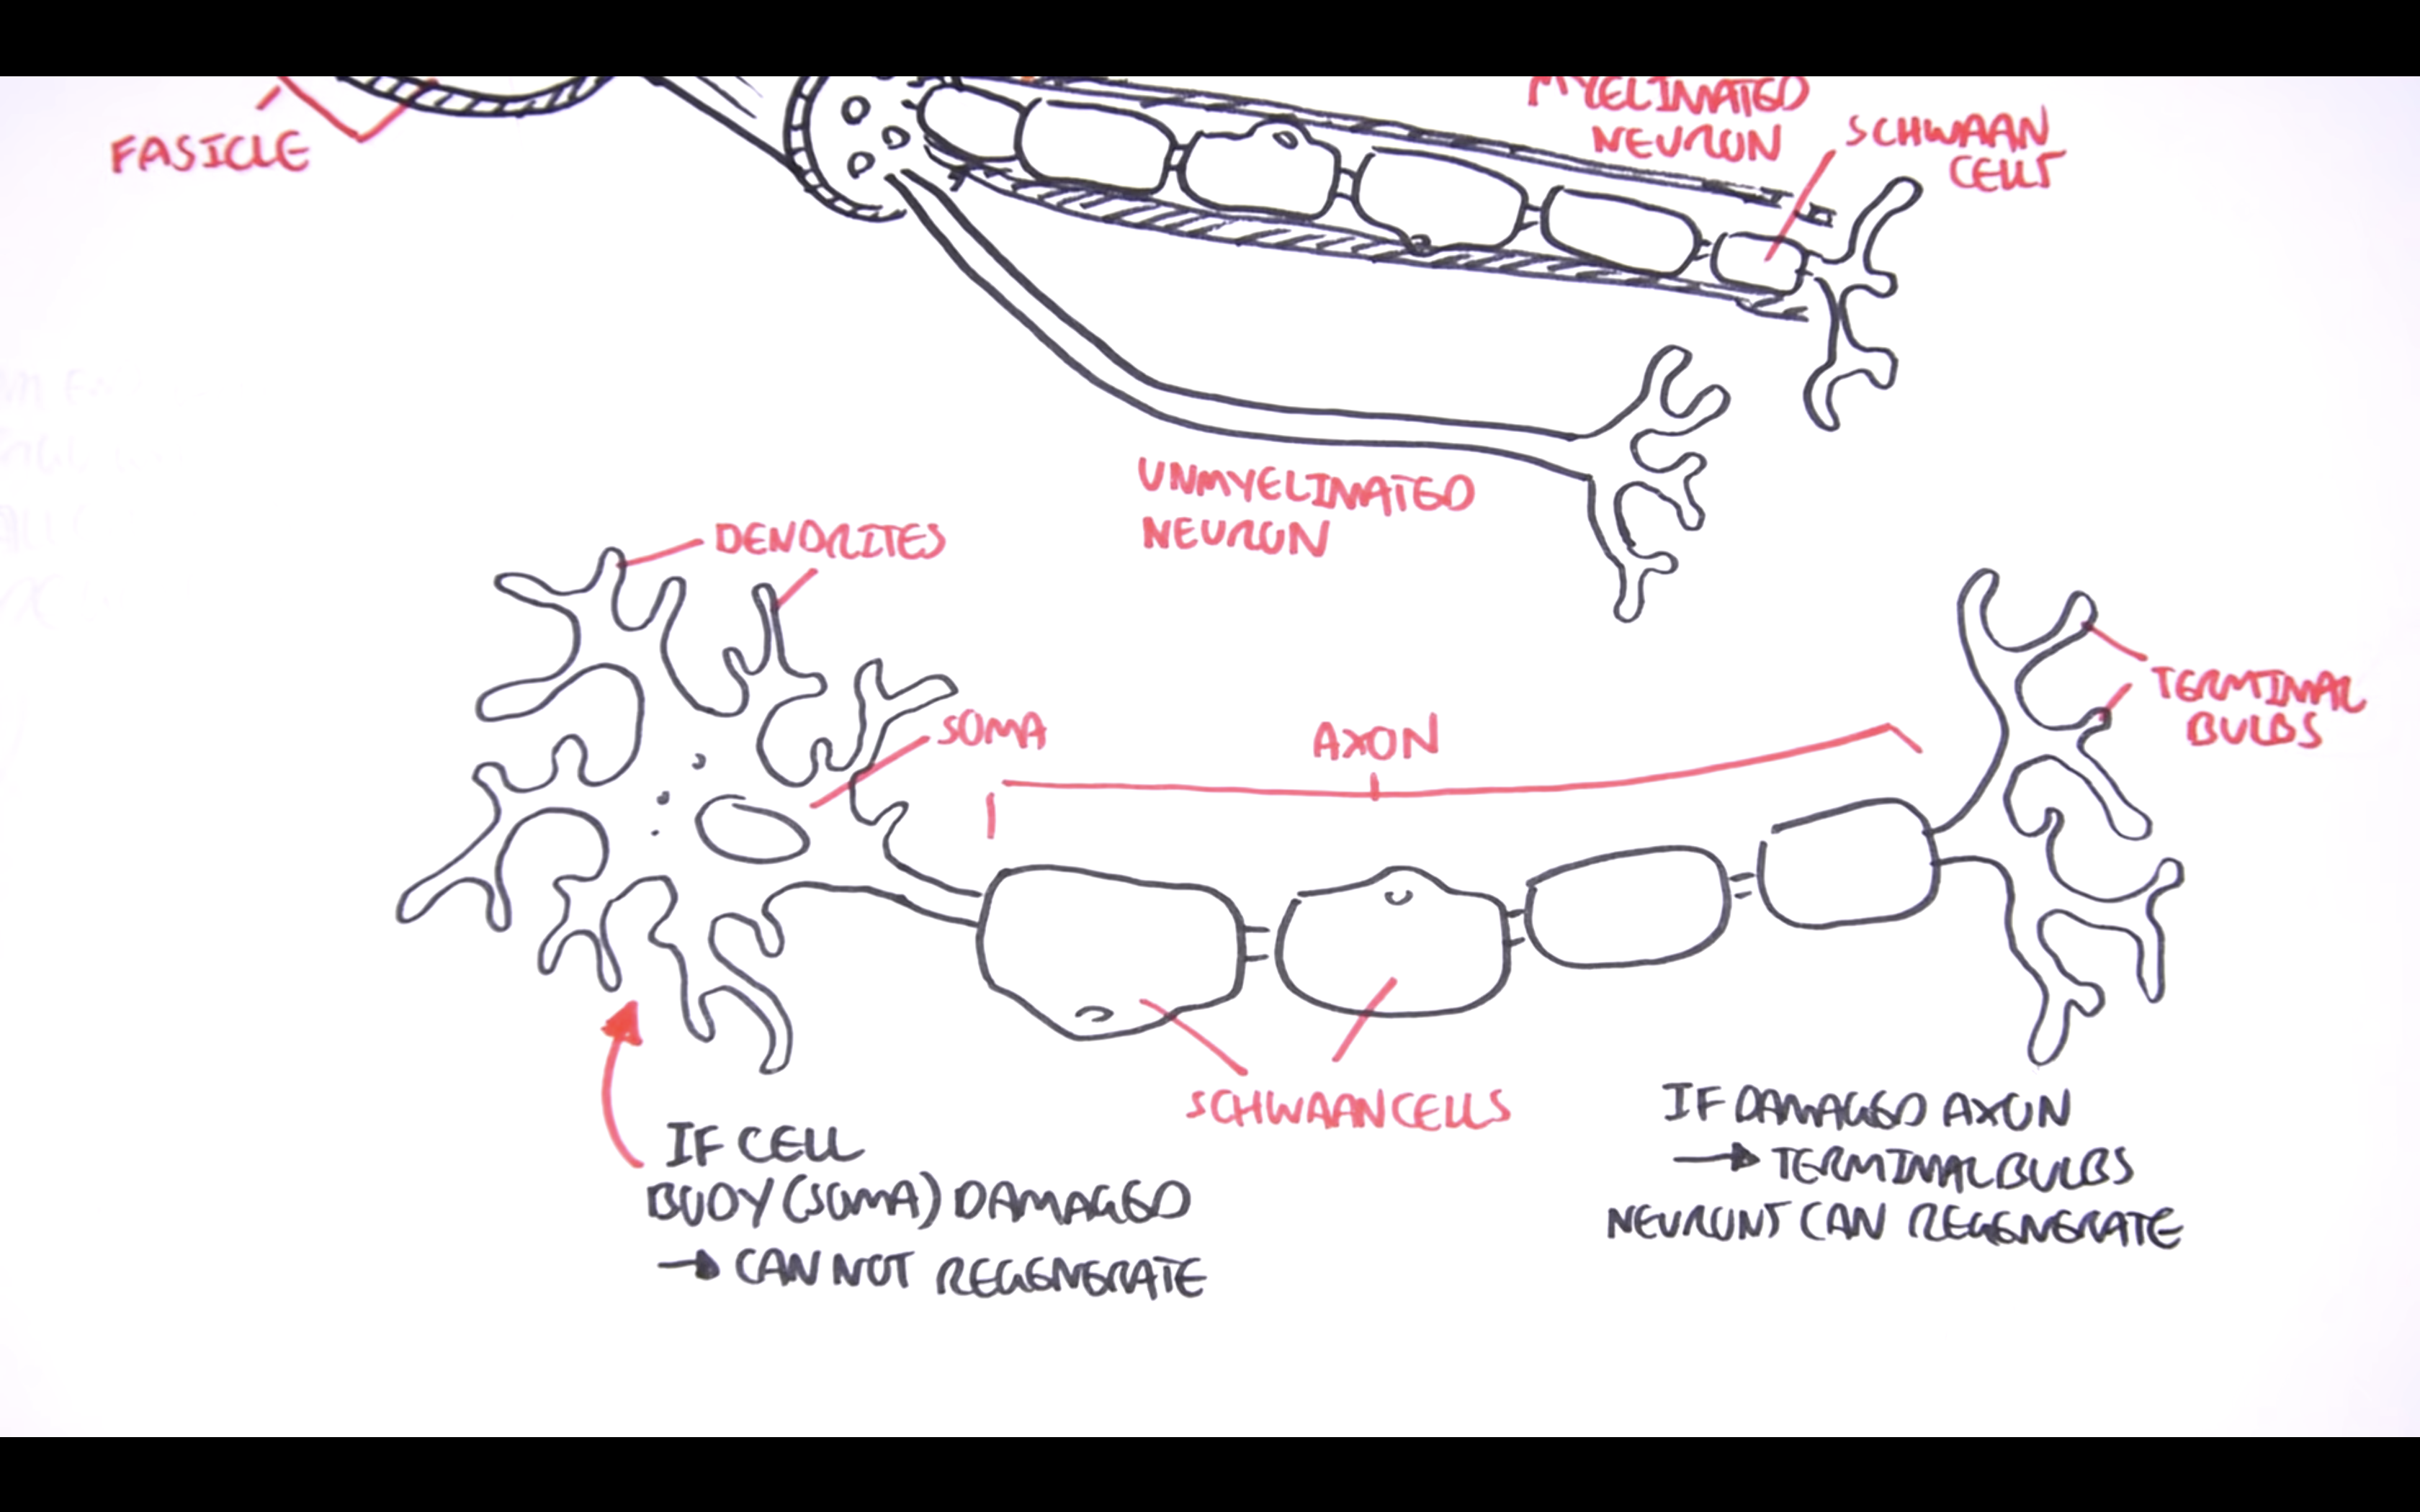 MYELINATED
NEURON
SCHWAAN
CELLS
FASICLE
UNMYELINATED
NEURON
DENDRITES
SOMA
AXON
TERMINAL
BULBS
SCHWAAN CELLS
IF CELL
BODY (SOMA) DAMAGED
→ CAN NOT REGENERATE
IF DAMAGED AXON
→ TERMINAL BULBS
NEURONS CAN REGENERATE